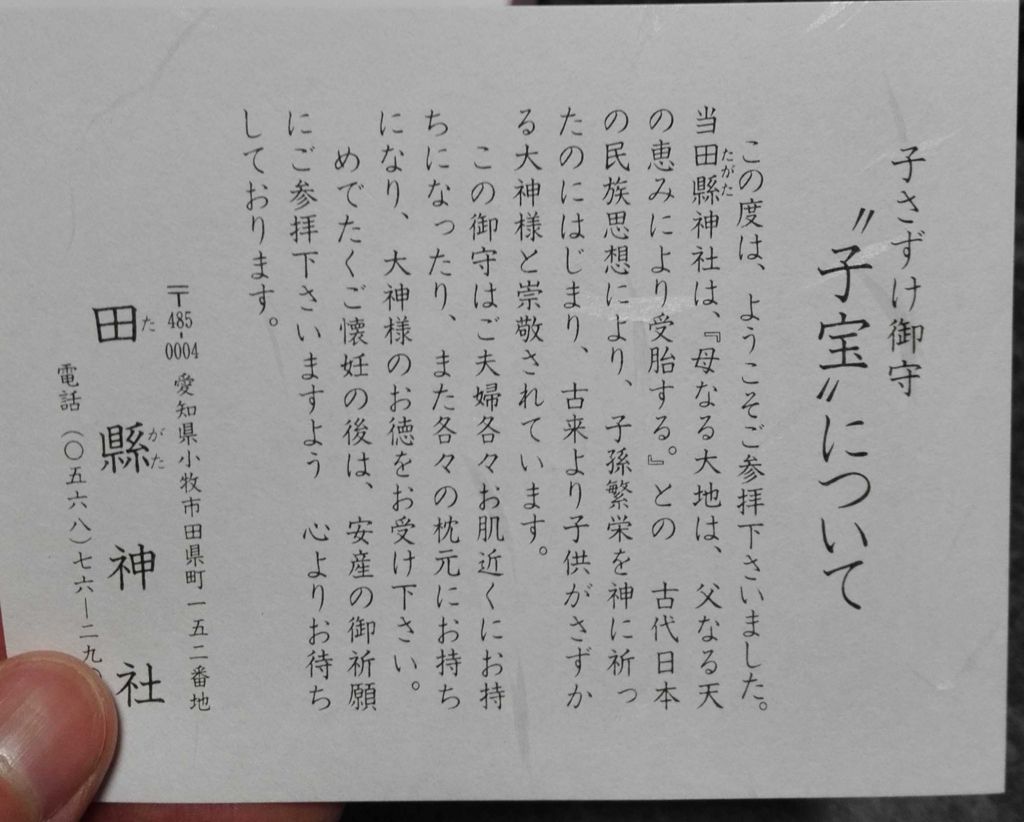 子さずけ御守
〃子宝〃について
この度は、ようこそご参拝下さいました。
当田縣神社は、『母なる大地は、父なる天
たがた
の恵みにより受胎する。』との 古代日本
の民族思想により、子孫繁栄を神に祈っ
たのにはじまり、古来より子供がさずか
る大神様と崇敬されています。
この御守はご夫婦各々お肌近くにお持
ちになったり、また各々の枕元にお持ち
になり、大神様のお徳をお受け下さい。
めでたくご懐妊の後は、安産の御祈願
にご参拝下さいますよう 心よりお待ち
しております。
〒485-0004 愛知県小牧市田県町一五二番地
田縣神社
た がた
電話(〇五六八)七六―二九